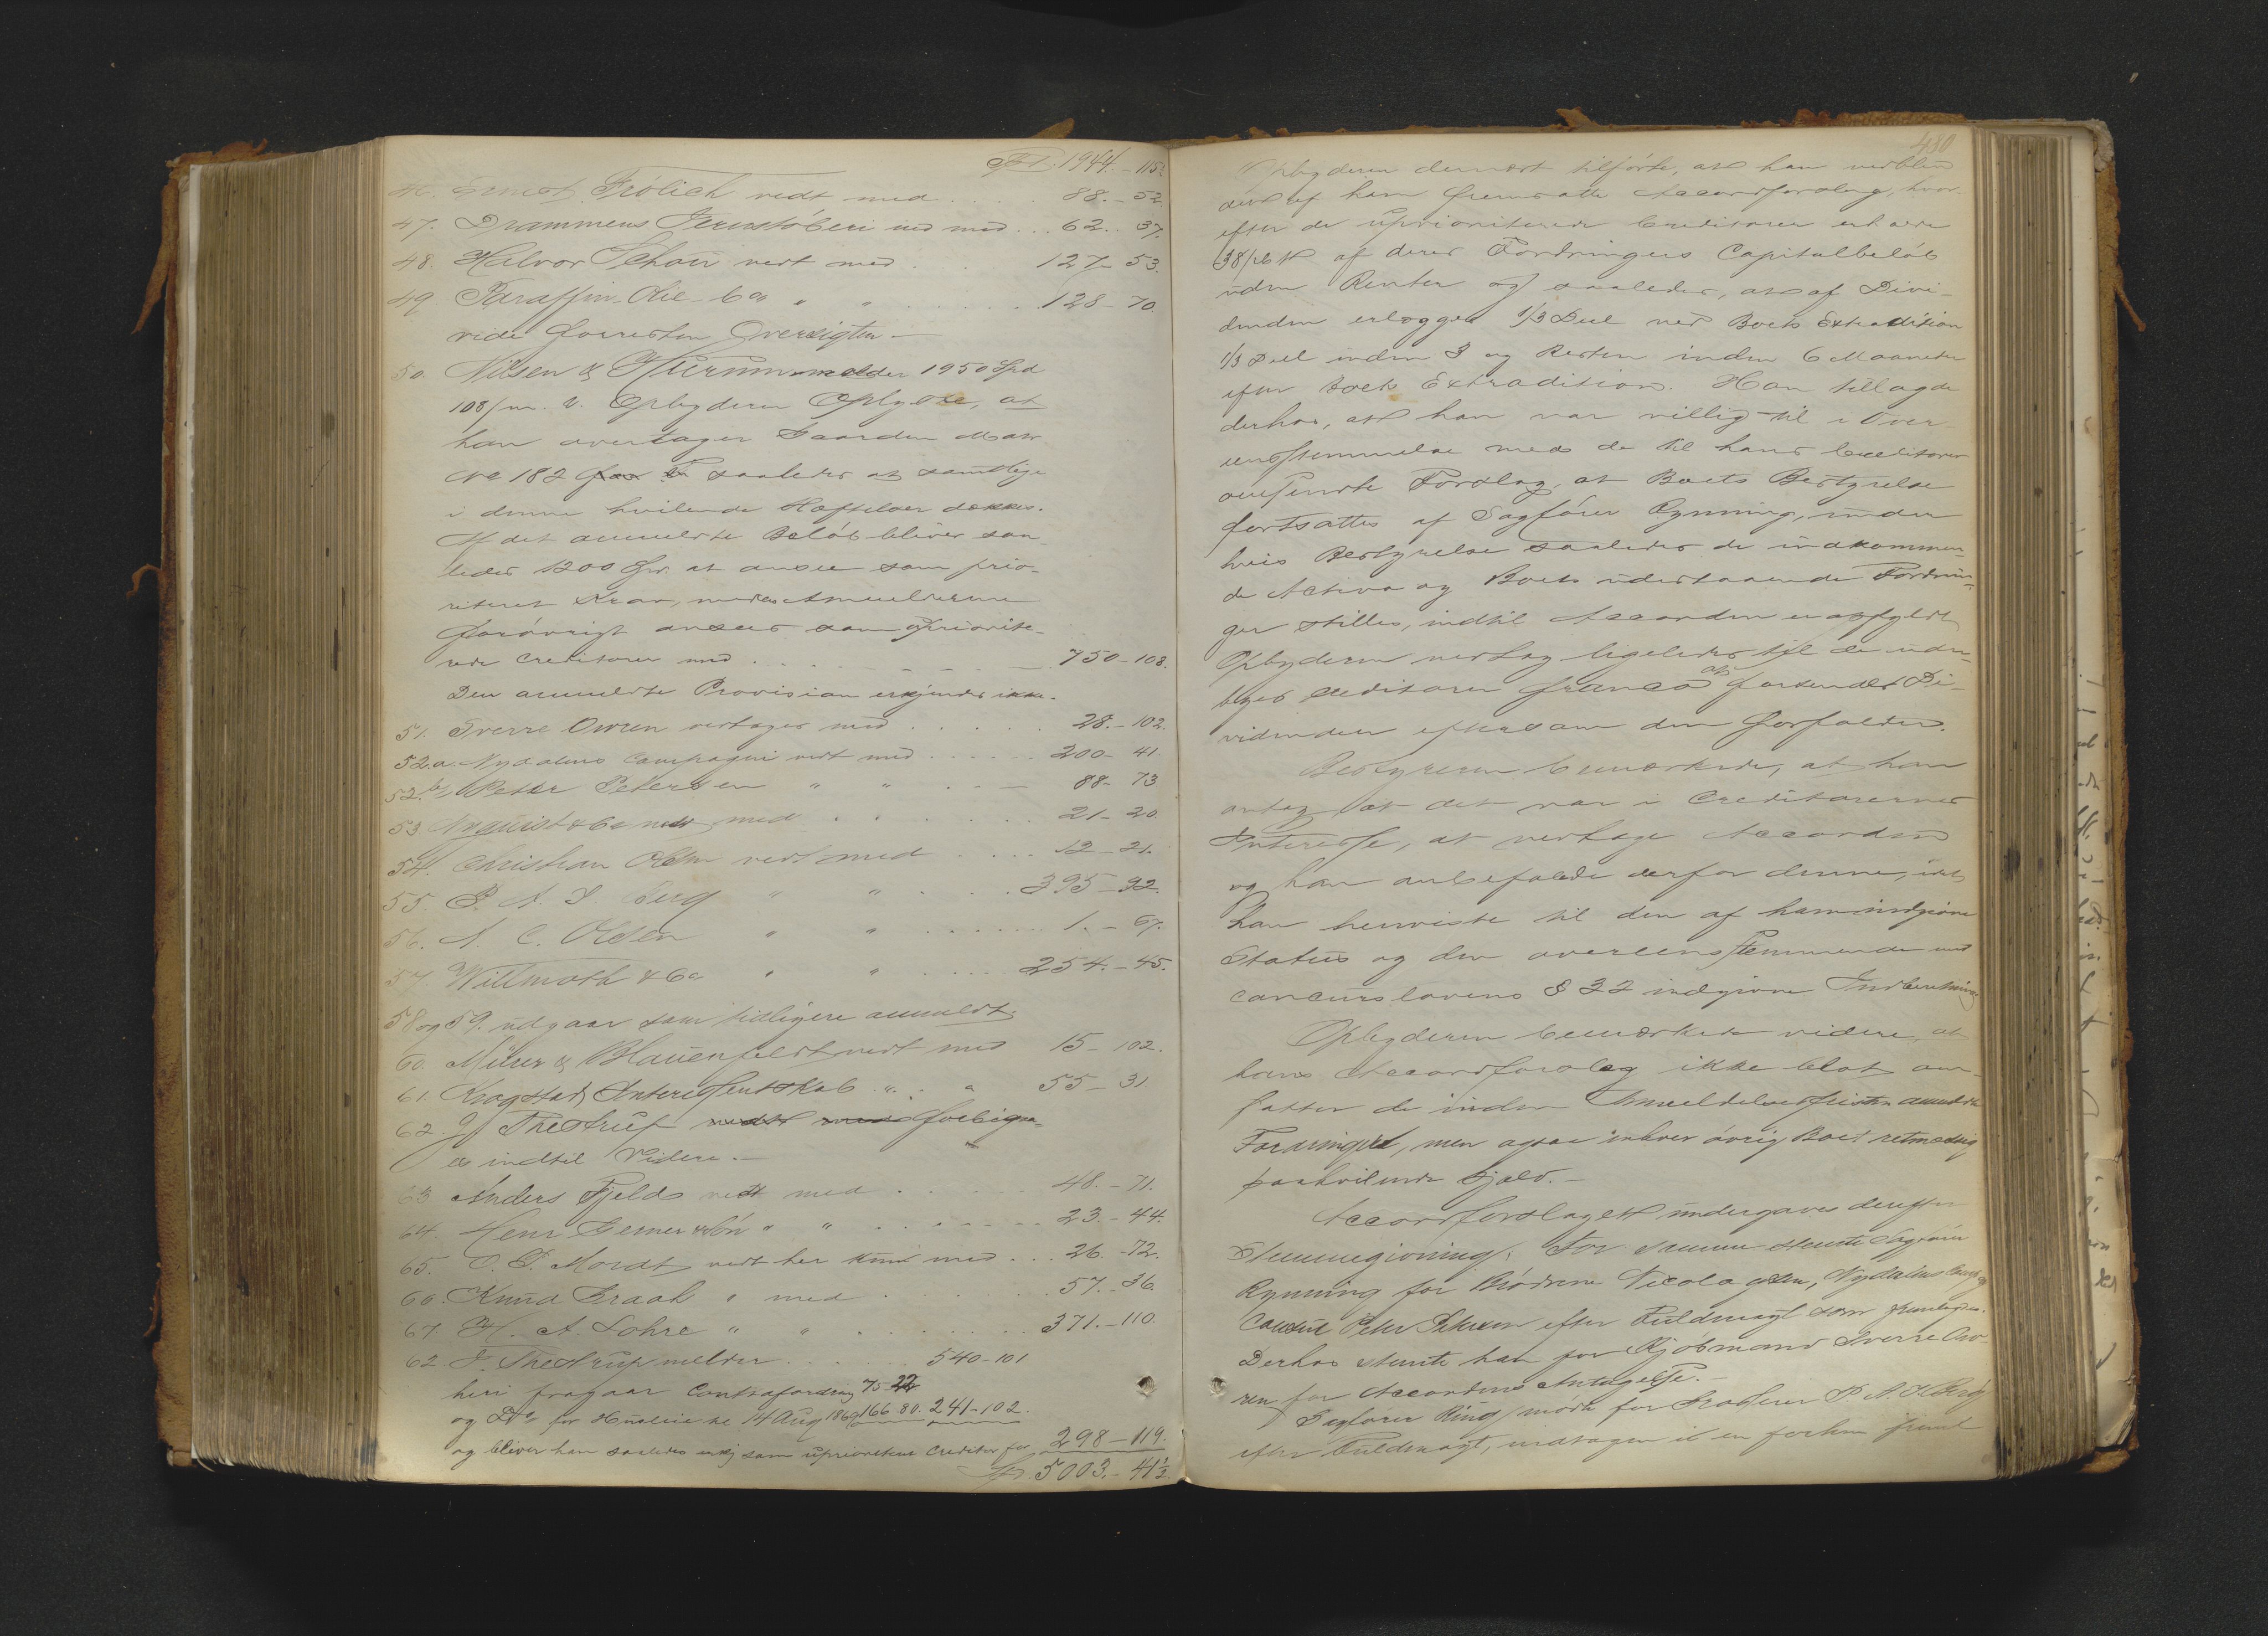 Tr. 1944.-115½
46. Ernst Frölich vedt med .... 88.-52.
47. Drammens Jernstöberi ved med ... 62.. 37.
48. Halvor Schou vedt med . . . 127-53.
49 Paraffin Olie Co " " . . . . . 128-70.
vide forresten Oversigten -
50. Nilsen & melder 1950 Spd
108/ m. V. Opbyderen Oplyste, at
han overtager Gaarden Matr
No 182 saaledes at samtlige
i denne hvilende Hæftelser dækkes.
Af det anmeldte Belöb bliver saa-
ledes 1200 Spd. at ansee som prio-
riteret Krav, medens Anmelderne
forövrigt ansees som upriorite-
rede Creditorer med . . . . . . . 750-108.
Den anmeldte Provision erkjendes ikke.
51. Sverre Owren vedtages med . . . . . 28.-102.
52.a. Nydalens Compagni vedt med . . . . . 200-41.
52.b, Peter Petersen " " . . . 88-73
53 Nyquist & Co vedt med . . . . . . 21-20.
54. Christian Olsen vedt med . . . . 12-21.
55. P. A. S. Berg " " . . . . 395-92.
56. A. C. Olsen " " . . . . . 1.-67.
57. Willmoth & Co " " . . . . 254.-45.
58 og 59. udgaar som tidligere anmeldt.
60. Müser & Blauenfeldt vedt med 15-102.
61. Krogstad Interessentskab " . " 55-31
62. J. Thestrup vedt med forbigaa-
es indtil Videre.-
63 Anders Fjeld vedt med . . . . . 48.-71.
64. Henr Gerner & Sön " " . . . . . 23.-44.
65. O. P. Mordt vedt her kun med ... 26.-72.
66. Knud Graah " med . . . . . 57.-36.
67. H. A. Lohre " " . . . . . . 371.-110
62 J. Thestrup melder . . . . 540-101
heri fragaar Contrafordring 75 22
og Do for Huusleie til 14 Aug 1869 166.80. 241-102.
og bliver han saaledes erkj som uprioriteret Creditor for 298-119.
Sp. 5003.-41½.
430
Opbyderen dernæst tilförte, at han verblev
det af ham fremsatte Accordforslag, hvor-
efter de uprioriterede Creditorer erholde
38 pCt af deres Fordringers Capitalbelöb
uden Renter og saaledes, at af Divi-
denden erlægges 1/3 Deel ved Boets Extradition
1/3 Deel inden 3 og Resten inden 6 Maaneder
efter Boets Extradition. Han tillagde
derhos, at han var villig til i Over
eensstemmelse med de til hans Creditorer
omsendte Forslag, at Boets Bestyrelse
fortsattes af Sagförer Rynning, under
hvis Bestyrelse saaledes de indkommen-
de Activa og Boets udestaaende Fordrin-
ger stilles, indtil Accorden er opfyldt
Opbyderen vedtog ligeledes til de uden-
byes Creditorer franco at forsendes Di-
videnden eftersom den forfalder.
Bestyreren bemærkede, at han
antog at det var i Creditorernes
Interesse, at vedtage Accorden
og han anbefalede derfor denne, idet
han henviste til den af ham indgivne
Status og den overeensstemmende med
Concurslovens § 32 indgivne Indberetning
Opbyderen bemærkede videre, at
hans Accordforslag ikke blot om-
fatter de inden Anmeldelsesfristen anmeldte
Fordringer, men ogsaa enhver övrig Boet retmæssig
paahvilende Gjæld.-
Accordforslaget undergaves derefter
Stemmegivning. For samme stemte Sagförer
Rynning for Brödrene Nicolaysen, Nydalens Comp og
Consul Peter Petersen efter Fuldmagt som fremlagdes.
Derhos stemte han for Kjöbmand Sverre Ow-
ren for Accordens Antagelse.-
Sagförer Ring mödte for Grosserer P. A. S. Berg
efter Fuldmagt, indtagen i en forhen freml